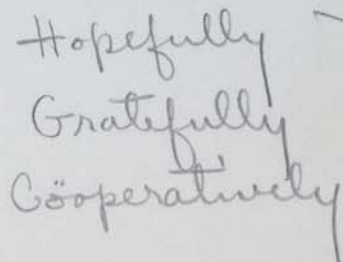 Hopefully
Gratefully
Cöoperatively